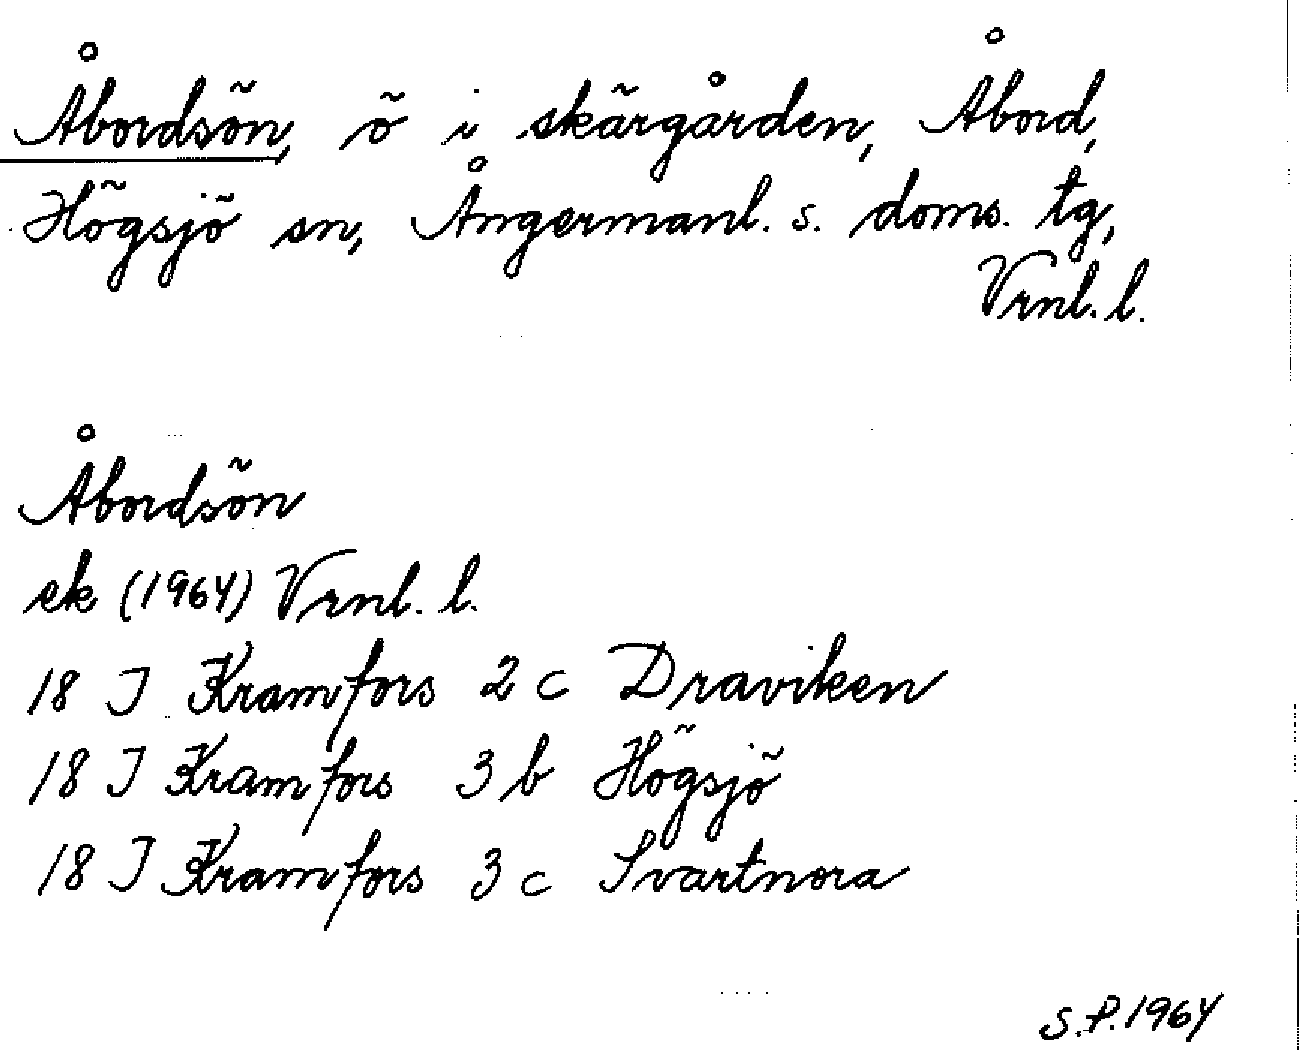 Åbordsön, ö i skärgården, Åbord,
Högsjö sn, Ångermanl. s. doms. tg,
Vrnl. l.
Åbordsön
ek (1964) Vrnl. l.
18 J Kramfors 2 c Draviken
18 J Kramfors 3 b Högsjö
18 J Kramfors 3 c Svartnora
S.P. 1964